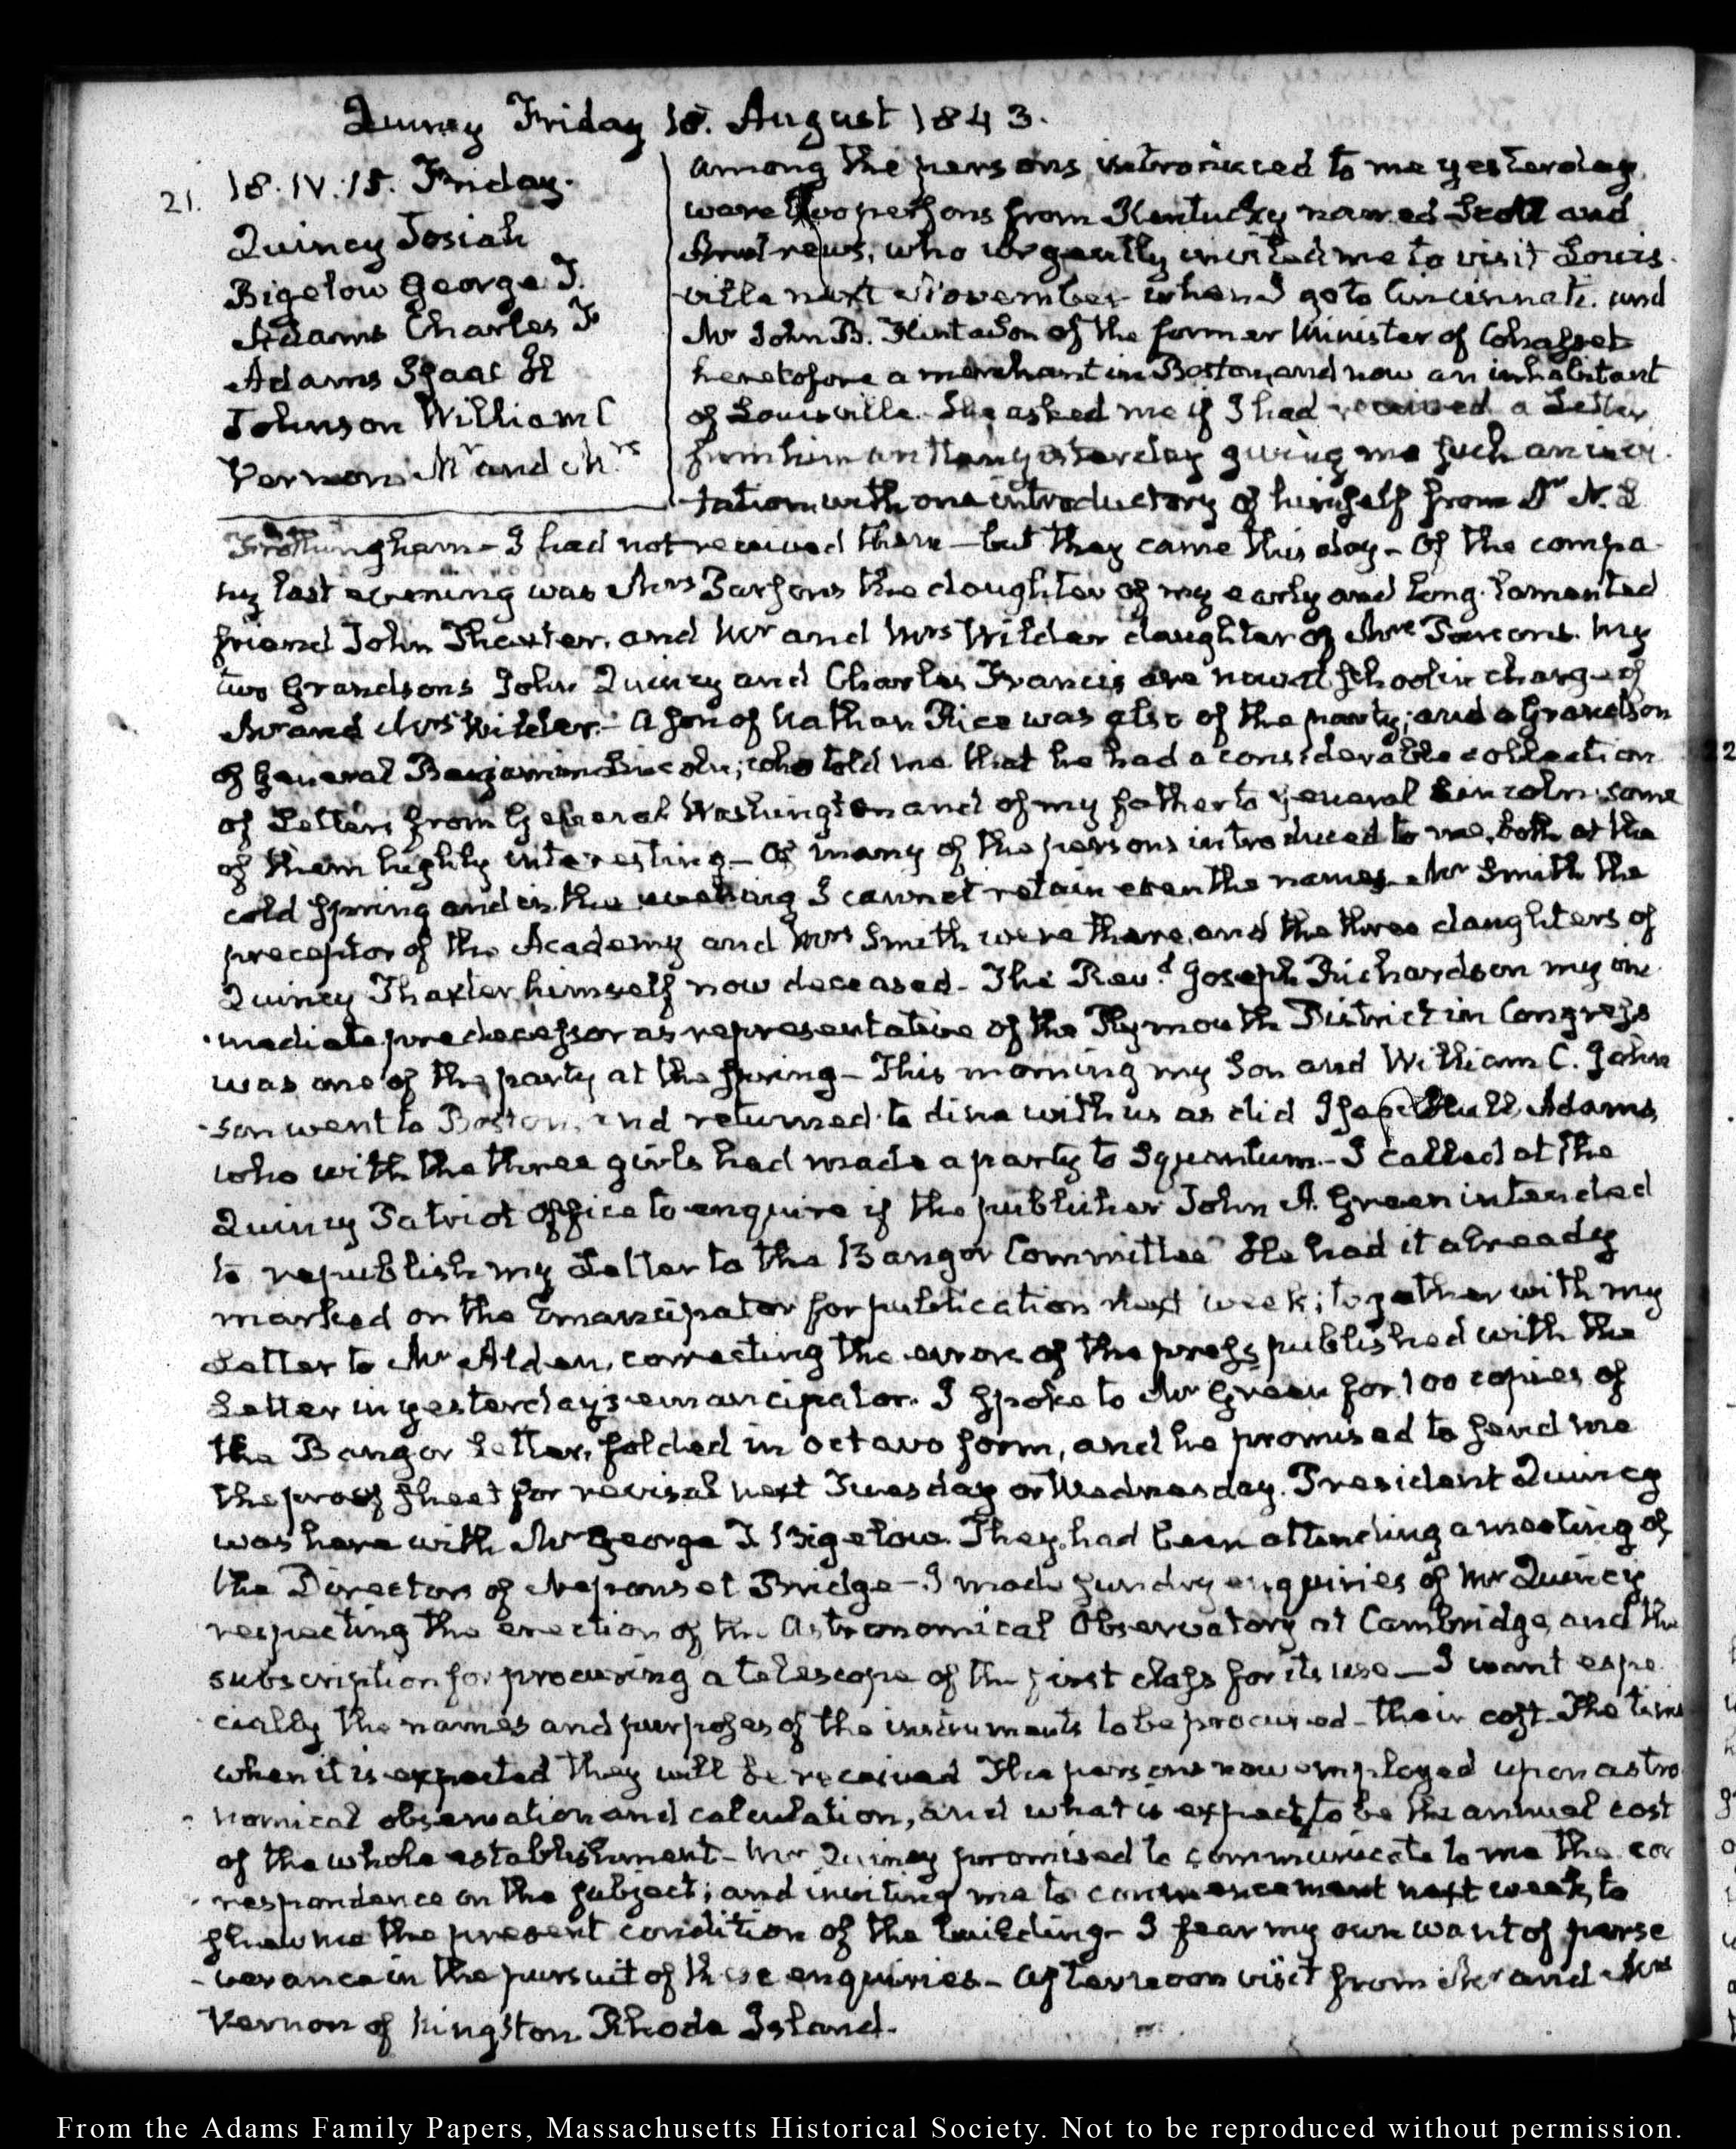 Quincy Friday 18. August 1843.
21. 18. IV:15. Friday.
Quincy Josiah
Bigelow George T.
Adams Charles F
Adams Isaac H
Johnson William C
Vernon Mr and Mrs
among the persons introduced to me yesterday,
were two persons from Kentucky named Scott and
Andrews, who urgently invited me to visit Louis-
ville next November when I go to Cincinnati. and
Mr John B. Flint a Son of the former Minister of Cohasset
heretofore a merchant in Boston, and now an inhabitant
of Louisville. He asked me if I had received a Letter
from him written yesterday giving me such an invi-
tation with one introductory of himself from Dr N. L
Frothingham - I had not received them - but they came this day - Of the compa-
ny last evening was Mrs Parsons the daughter of my early and long-lamented
friend John Thaxter, and Mr and Mrs Wilder daughter of Mrs Parsons. My
two Grandsons John Quincy and Charles Francis are now at school in charge of
Mr and Mrs Wilder. - A son of Nathan Rice was also of the party; and a Grandson
of General Benjamin Lincoln; who told me that he had a considerable collection
of Letters from General Washington and of my father to General Lincoln some
of them highly interesting - Of many of the persons introduced to me, both at the
cold spring and in the evening I cannot retain even the names. Mr Smith the
preceptor of the Academy and Mrs Smith were there, and the three daughters of
Quincy Thaxter, himself now deceased - The Revd. Joseph Richardson my im-
mediate predecessor as representative of the Plymouth District in Congress
was one of the party at the spring - This morning my Son and William C. John-
son went to Boston, and returned to dine with us as did Isaac Hull Adams
who with the three girls had made a party to Squantum. - I called at the
Quincy Patriot Office to enquire if the publisher John A. Green intended
to republish my Letter to the Bangor Committee He had it already
marked on the Emancipator for publication next week; together with my
Letter to Mr Alden, correcting the error of the press published with the
Letter in yesterday's emancipator. I spoke to Mr Green for 100 copies of
the Bangor Letter, folded in octavo form, and he promised to send me
the proof sheet for revisal next Tuesday or Wednesday. President Quincy
was here with Mr George T Bigelow. They had been attending a meeting of
the Directors of Neponset Bridge - I made sundry enquiries of Mr Quincy
respecting the erection of the Astronomical Observatory at Cambridge, and the
subscription for procuring a telescope of the first class for its use - I want espe-
cially the names and purposes of the instruments to be procured - their cost - The time
when it is expected they will be received The persons now employed upon astro-
nomical observation and calculation, and what is expect to be the annual cost
of the whole establishment - Mr Quincy promised to communicate to me the cor-
respondence on the subject; and inviting me to commencement next week, to
shew me the present condition of the building - I fear my own want of perse-
verance in the pursuit of these enquiries - Afternoon visit from Mr and Mrs
Vernon of Kingston Rhode Island.
From the Adams Family Papers, Massachusetts Historical Society. Not to be reproduced without permission.